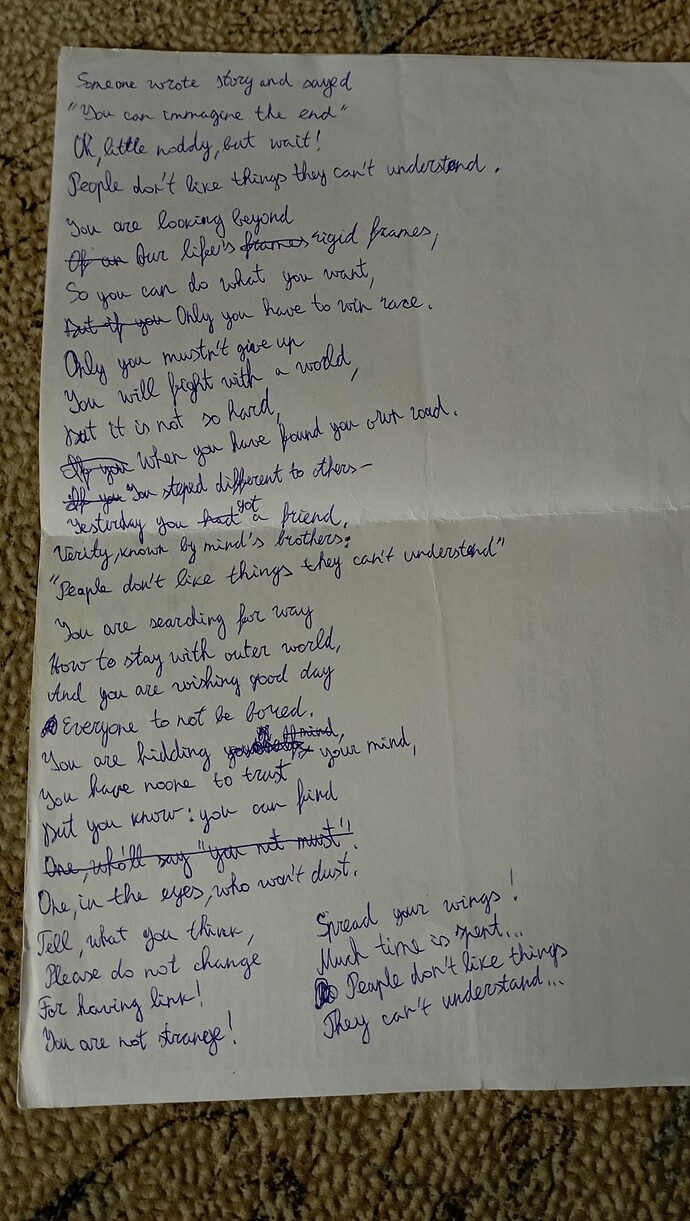 Someone wrote story and sayed
"You can immagine the end"
Oh, little noddy, but wait!
People don't like things they can't understand.
You are looking beyond
Of an Our life's frames rigid frames,
So you can do what you want,
But if you Only you have to win race.
Only you mustn't give up
You will fight with a world,
But it is not so hard,
If you When you have found you own road.
If you You steped different to others—
Yesterday you had got a friend.
Verity, known by mind's brothers:
"People don't like things they can't understand"
You are searching for way
How to stay with outer world,
And you are wishing good day
Everyone to not be bored.
You are hidding your mind,
You have noone to trust
But you know: you can find
One, who'll say "you not must"!
One, in the eyes, who won't dust.
Tell, what you think,
Please do not change
For having link!
You are not strange!
Spread your wings!
Much time is spent...
People don't like things
They can't understand...